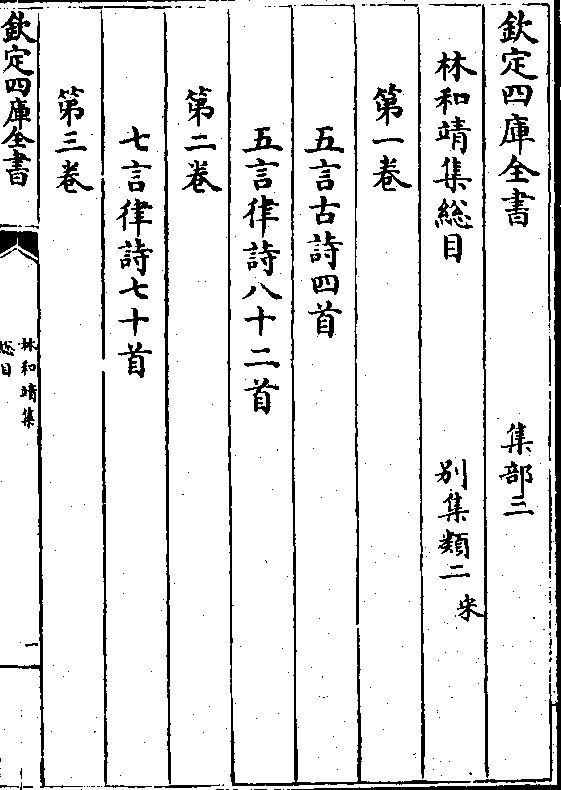 欽定四庫全書 集部三
林和靖集総目 別集類二宋
第一卷
五言古詩四首
五言律詩八十二首
第二卷
七言律詩七十首
第三卷
欽定四庫全書
林和靖集
総目
一